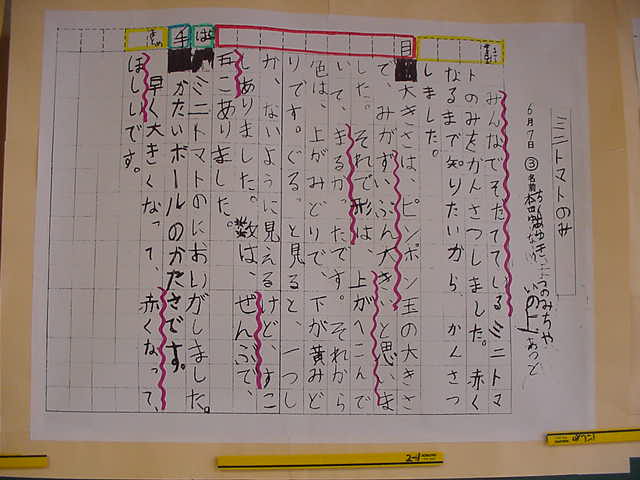 ミニトマトのみ
6月7日 ③ 名前
みんなでそだてているミニトマ
トのみをかんさつしました。赤く
なるまで知りたいから、かんさつ
しました。
目
大きさは、ピンポン玉の大きさ
で、みがずいぶん大きいと思いま
した。それで形は、上がへこんで
いて、まるかったです。それから
色は、上がみどりで、下が黄みど
りです。ぐるっと見ると、一つし
か、ないように見えるけど、すこ
しありました。数は、ぜんぶで、
五こありました。
は
ミニトマトのにおいがしました。
手
かたいボールのかたさです。
早く大きくなって、赤くなって、
ほしいです。
2-1